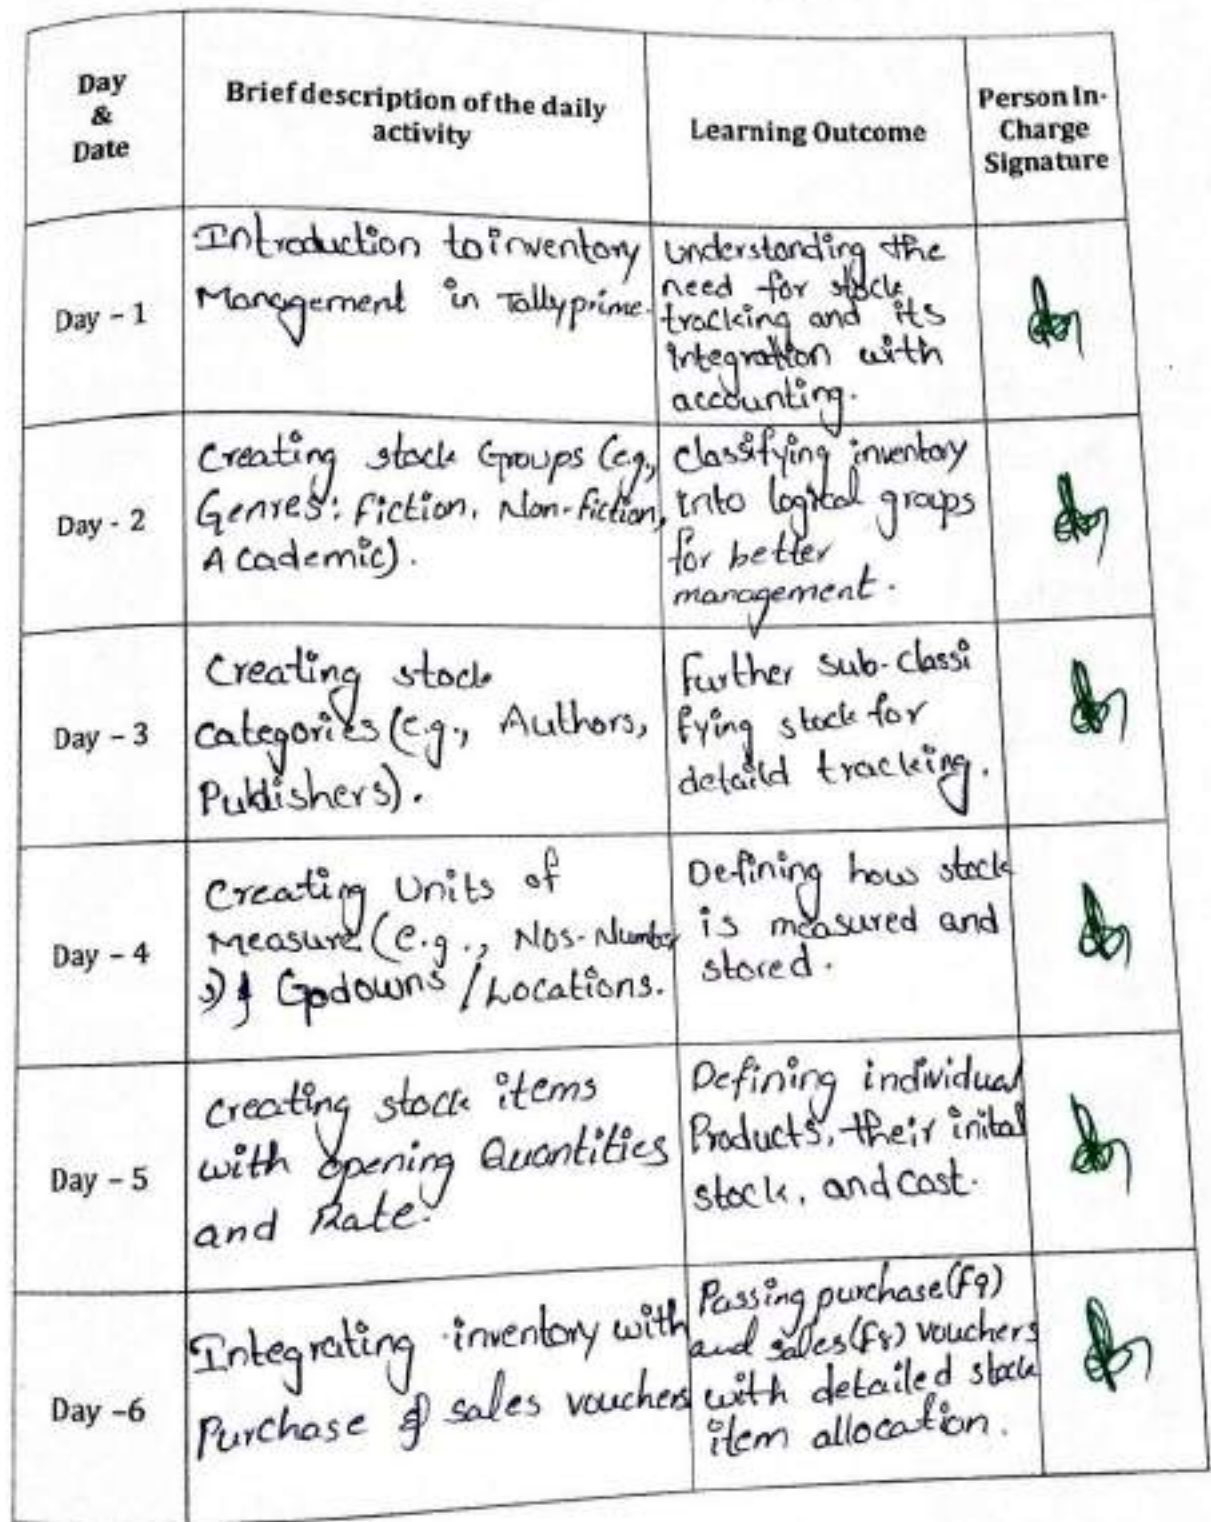 Day
&
Date
Brief description of the daily
activity
Learning Outcome
Person In-
Charge
Signature
Day - 1
Introduction to inventory
Management in Tallyprime.
understanding the
need for stock
tracking and its
integration with
accounting.
Day - 2
Creating stock Groups (e.g.,
Genres: fiction, Non-fiction,
Academic).
classifying inventory
into logical groups
for better
management.
Day - 3
Creating stock
categories (e.g., Authors,
Publishers).
further sub-classi
fying stock for
detaild tracking.
Day - 4
Creating Units of
Measure (e.g., Nos-Number
s) & Godowns / Locations.
Defining how stock
is measured and
stored.
Day - 5
creating stock items
with opening Quantities
and Rate.
Defining individual
Products, their inital
stock, and cost.
Day -6
Integrating inventory with
Purchase & sales vouchers
Passing purchase (f9)
and sales (f8) vouchers
with detailed stock
item allocation.